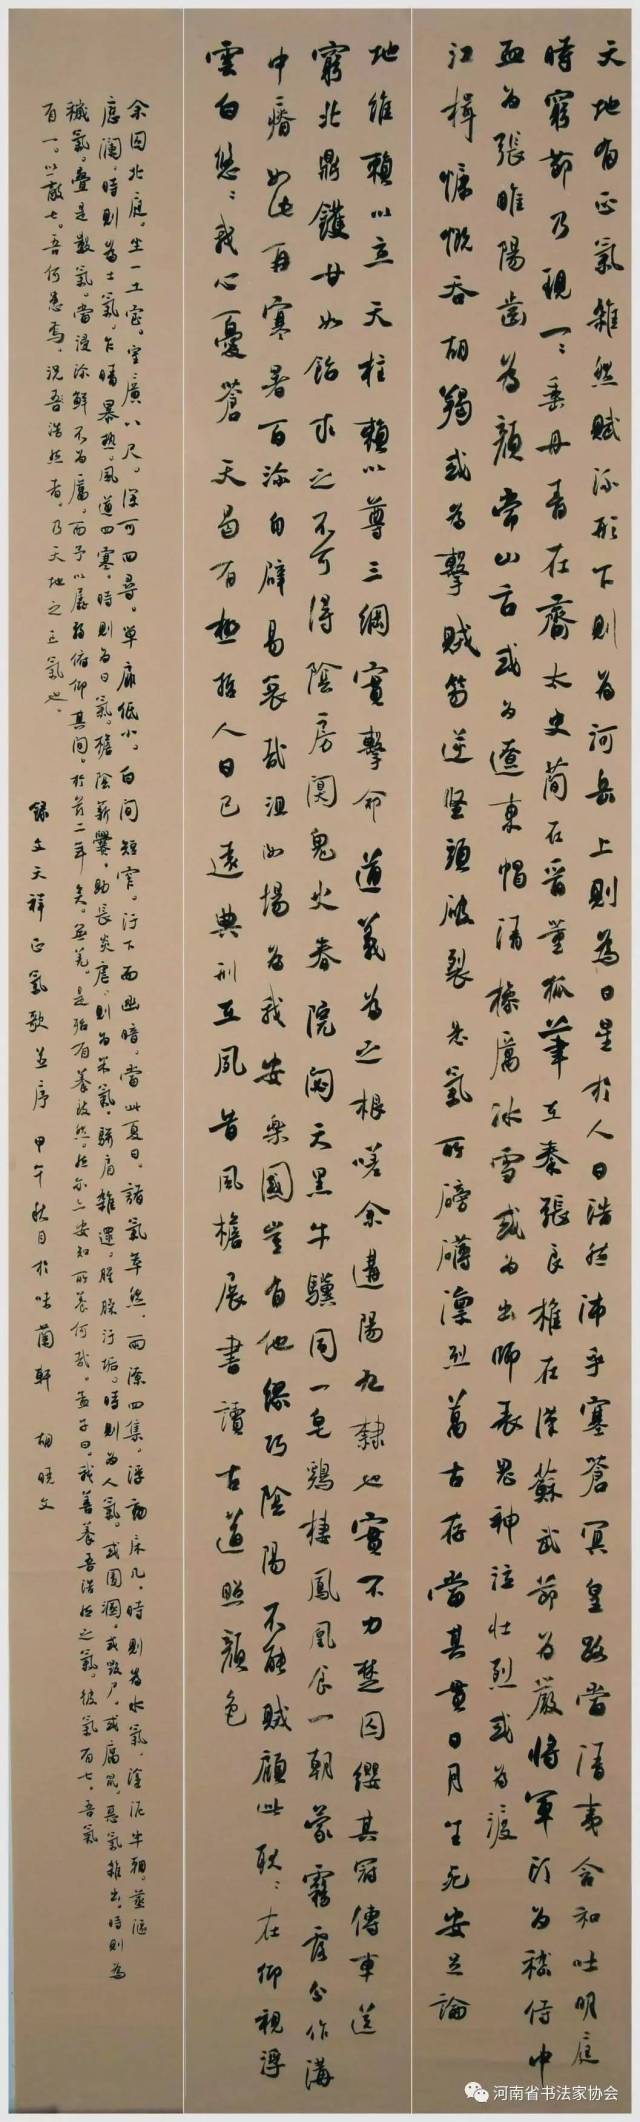 天地有正氣雜然賦流形下則為河岳上則為日星於人曰浩然沛乎塞蒼冥皇路當清夷含和吐明庭
時窮節乃現一ミ垂丹青在齊太史簡在晉董狐筆在秦張良椎在漢蘇武節為嚴將軍頭為嵇侍中
血為張睢陽齒為顏常山舌或為遼東帽清操厲冰雪或為出師表鬼神泣壯烈或為渡
江楫慷慨吞胡羯或為擊賊笏逆竪頭破裂是氣所磅礴凜烈萬古存當其貫日月生死安足論
地維賴以立天柱賴以尊三綱實擊命道義為之根嗟余遘陽九隸也實不力楚囚纓其冠傳車送
窮北鼎鑊甘如飴求之不可得陰房闃鬼火春院閟天黑牛驥同一皂鷄棲鳳凰食一朝蒙霧露分作溝
中瘠如此再寒暑百沴自辟易哀哉沮洳場為我安樂國豈有他繆巧陰陽不能賊顧此耿ミ在仰視浮
雲白悠ミ我心憂蒼天曷有極哲人日已遠典刑在夙昔風檐展書讀古道照顏色
余囚北庭。坐一土室。室廣八尺。深可四尋。單扉低小。白間短窄。汙下而幽暗。當此夏日。諸氣萃然。雨潦四集。浮動床几。時則為水氣。塗泥半朝。蒸漚
歷瀾。時則為土氣。乍晴暴熱。風道四塞。時則為日氣。檐陰薪爨。助長炎虐。則為米氣。駢肩雜遝。腥臊汙垢。時則為人氣。或圊溷。或毀尸。或腐鼠。惡氣雜出。時則為
穢氣。疊是數氣。當浸沴鮮不為厲。而予以孱弱俯仰其間。於茲二年矣。無恙。是殆有養致然。然爾亦安知所養何哉。孟子曰。我善養吾浩然之氣。彼氣有七。吾氣
有一。以一敵七。吾何患焉。況吾浩然者。乃天地之正氣也。
錄文天祥正氣歌並序 甲午秋月於味蘭軒 胡曉文
河南省书法家协会